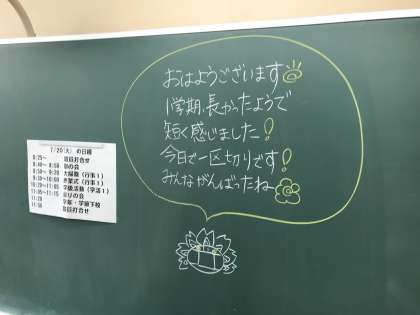 おはようございます
1学期、長かったようで
短く感じました!
今日で一区切りです!
みんながんばったね
7/20(火) の日程
8:25~ 職員打合せ
8:40~ 8:50 朝の会
8:50~ 9:20 大掃除 (行事1)
9:30~10:00 終業式 (行事1)
10:20~11:05 学級活動 (学活1)
11:05~11:15 帰りの会
11:30 学年・学級下校